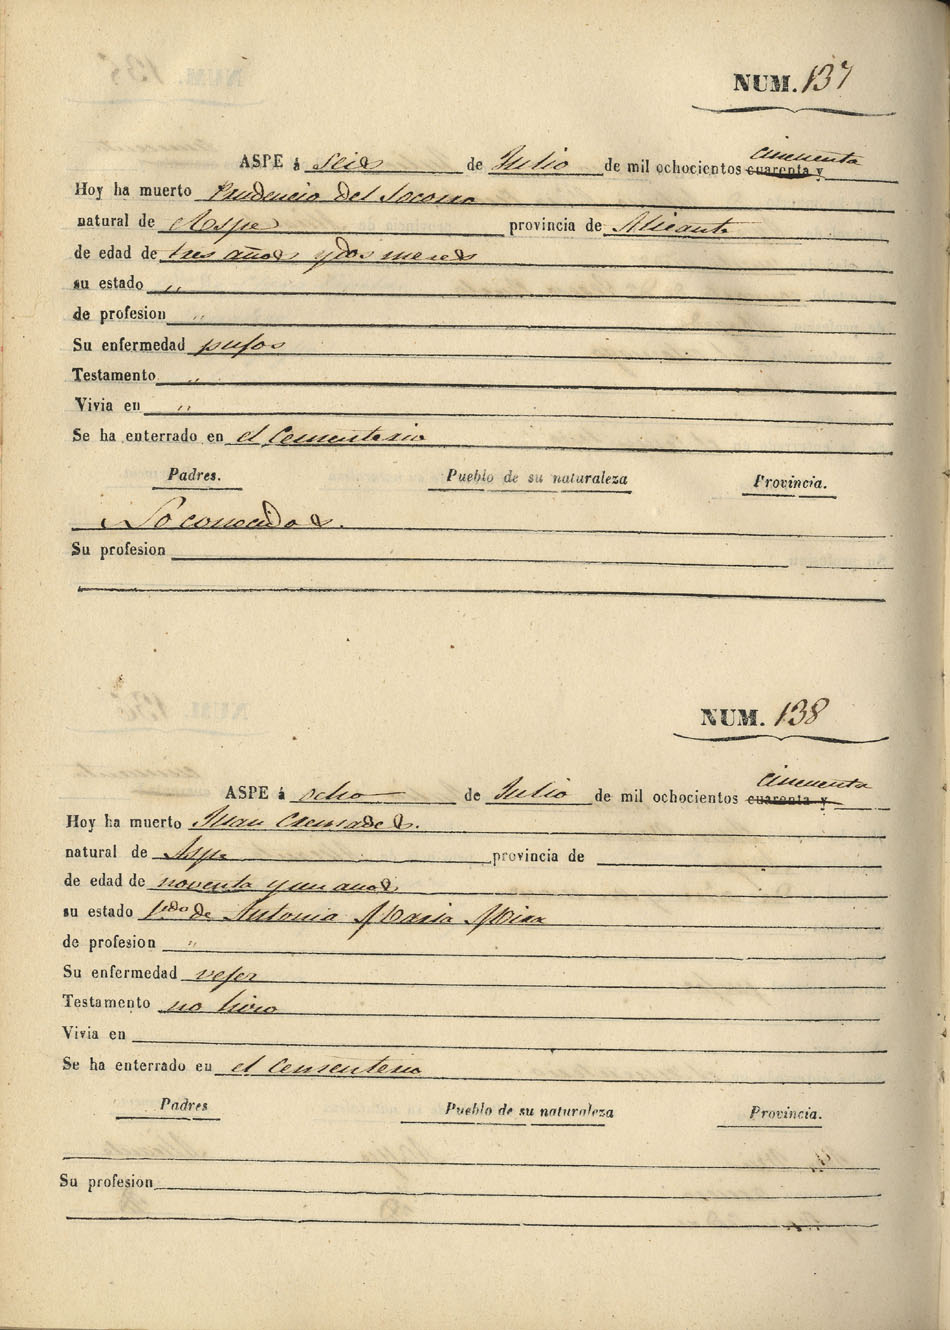 NUM. 137
cincuenta
ASPE á seis de Julio de mil ochocientos cuarenta y
Hoy ha muerto Prudencio del Socorro
natural de Aspe provincia de Alicante
de edad de tres años y dos meses
su estado "
de profesion "
Su enfermedad pujos
Testamento "
Vivia en "
Se ha enterrado en el Cementerio
Padres. Pueblo de su naturaleza Provincia.
No conocidos.
Su profesion
NUM. 138
cincuenta
ASPE á ocho de Julio de mil ochocientos cuarenta y
Hoy ha muerto Juan Cremades.
natural de Aspe provincia de
de edad de noventa y un años
su estado de Antonia Maria Mira
de profesion "
Su enfermedad vejez
Testamento no hizo
Vivia en
Se ha enterrado en el Cementerio
Padres Pueblo de su naturaleza Provincia.
Su profesion